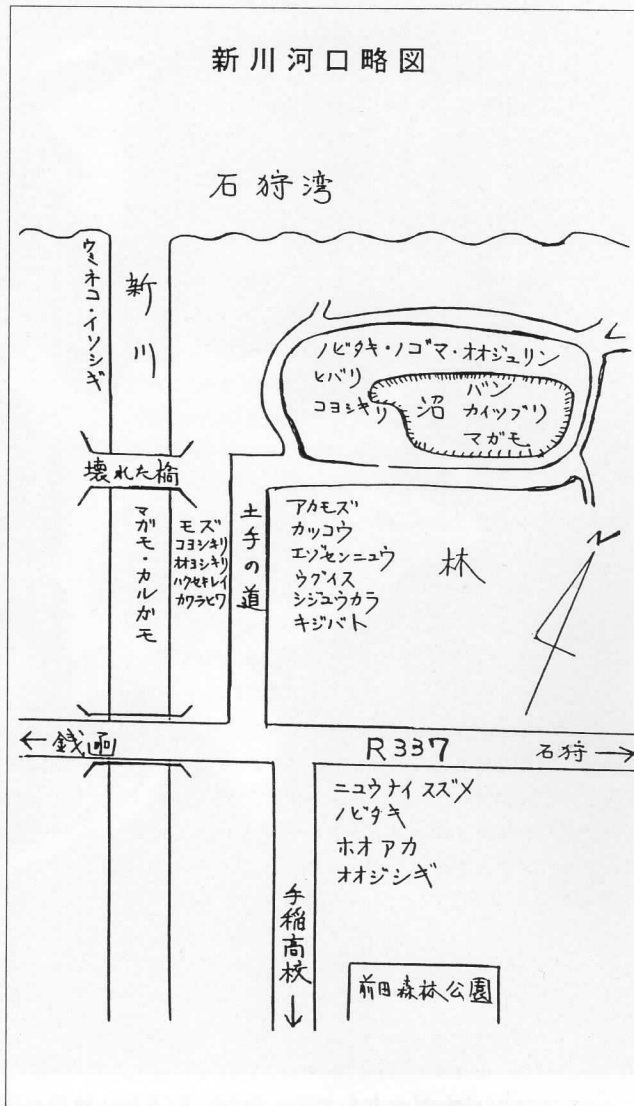 新川河口略図
石狩湾
ウミネコ・イソシギ
新川
ノビタキ・ノゴマ・オオジュリン
ヒバリ
コヨシキリ
沼
バン
カイツブリ
マガモ
壊れた橋
マガモ・カルガモ
モズ
コヨシキリ
オオヨシキリ
ハクセキレイ
カワラヒワ
土手の道
アカモズ
カッコウ
エゾセンニュウ
ウグイス
シジュウカラ
キジバト
林
N
← 銭函
R337
石狩 →
ニュウナイスズメ
ノビタキ
ホオアカ
オオジシギ
手稲高校 ↓
前田森林公園